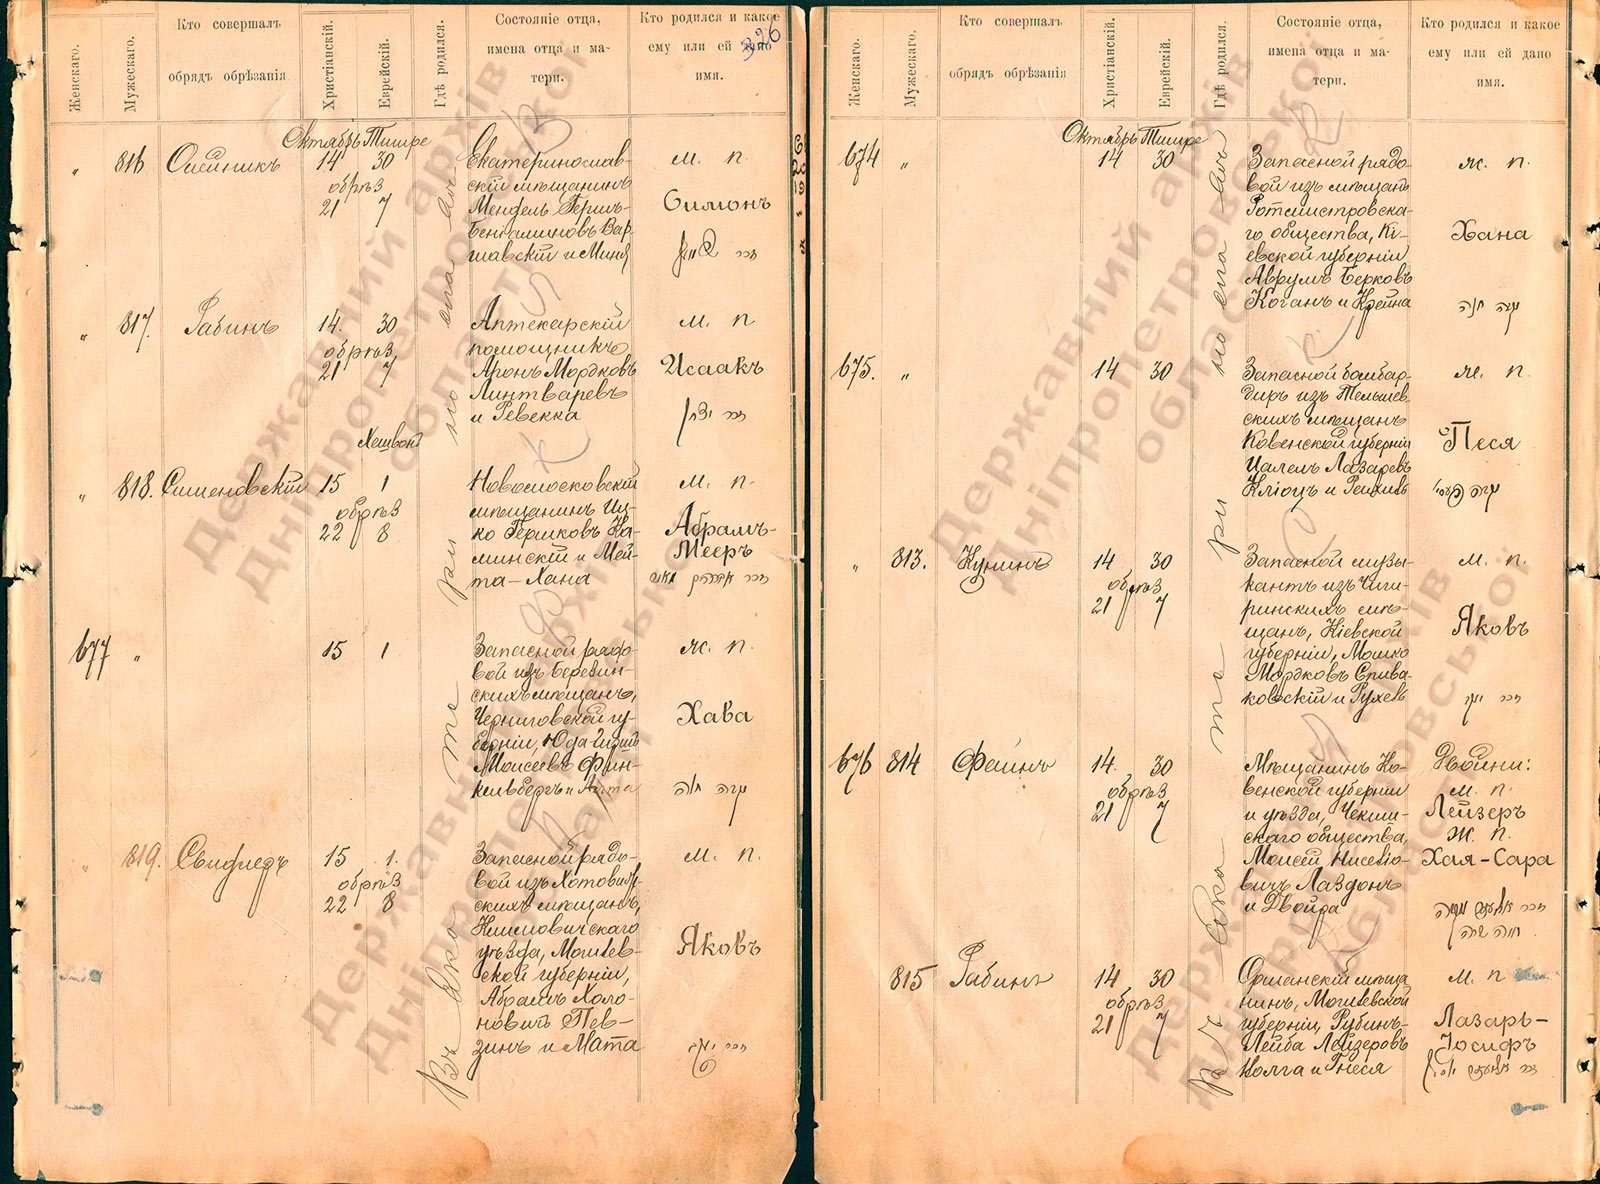 Женскаго.
Мужескаго.
Кто совершалъ
обрядъ обрѣзанія
Христіанскій.
Еврейскій.
Гдѣ родился.
Состояніе отца,
имена отца и ма-
тери.
Кто родился и какое
ему или ей дано
имя.
326
Октябрь Тишре
" 816 14 30
обрѣз
21 7
Екатеринослав-
скій мѣщанинъ
Мендель Гершъ-
Беніаминовъ Вар-
шавскій и Миня
м. п.
Симонъ
" 817. Рабинъ 14. 30
обрѣз
21 7
Аптекарскій
помощникъ
Аронъ Мордковъ
Линтваревъ
и Ревекка
м. п
Исаакъ
זכר יצחק
Хешвонъ
" 818. Симоновскій 15 1
обрѣз
22 8
Новомосковскій
мѣщанинъ Иц-
ко Гершковъ Ка-
минскій и Мей-
та-Хана
м. п.
Абрамъ-
Мееръ
677 " 15 1
Запасной рядо-
вой изъ Березин-
скихъ мѣщанъ,
Черниговской гу-
берніи, Юда-
Моисеевъ Фин-
кельбергъ и
ж. п.
Хава
נקבה חוה
" 819. 15 1.
обрѣз
22 8
Запасной рядо-
вой изъ
скихъ мѣщанъ,
Климовичскаго
уѣзда, Могилев-
ской губерніи,
Абрамъ Холо-
новичъ Пев-
знеръ и Мата
м. п.
Яковъ
זכר יעקב
Въ Екатеринославѣ
Женскаго.
Мужескаго.
Кто совершалъ
обрядъ обрѣзанія
Христіанскій.
Еврейскій.
Гдѣ родился.
Состояніе отца,
имена отца и ма-
тери.
Кто родился и какое
ему или ей дано
имя.
Октябрь Тишре
674 " 14 30
Запасной рядо-
вой изъ мѣщанъ
Ротмистровска-
го общества, Кі-
евской губерніи
Аврумъ Берковъ
Коганъ и Крейна
ж. п.
Хана
נקבה חנה
675. " 14 30
Запасной бомбар-
диръ изъ Тельшев-
скихъ мѣщанъ
Ковенской губерніи
Цалель Лазаревъ
Кліоцъ и Рейхиль
ж. п.
Песя
" 813. Кунинъ 14 30
обрѣз
21 7
Запасной музы-
кантъ изъ Чиги-
ринскихъ мѣ-
щанъ, Кіевской
губерніи, Мошко
Мордковъ Спива-
ковскій и Рухель
м. п.
Яковъ
זכר יעקב
676 814 Фейнъ 14. 30
обрѣз
21 7
Мѣщанинъ Ко-
венской губерніи
и уѣзда, Чекиш-
скаго общества,
Моисей
вичъ Лаздонъ
и Двойра
Двойни:
м. п.
Лейзеръ
Ж. п.
Хая-Сара
חיה שרה
815 Рабинъ 14 30
обрѣз
21 7
Оршанскій мѣща
нинъ, Могилевской
губерніи, Рубинъ-
Лейба Лейзеровъ
Колга и Гнеся
м. п
Лазарь-
Іосифъ
Державний архів
Дніпропетровської
області